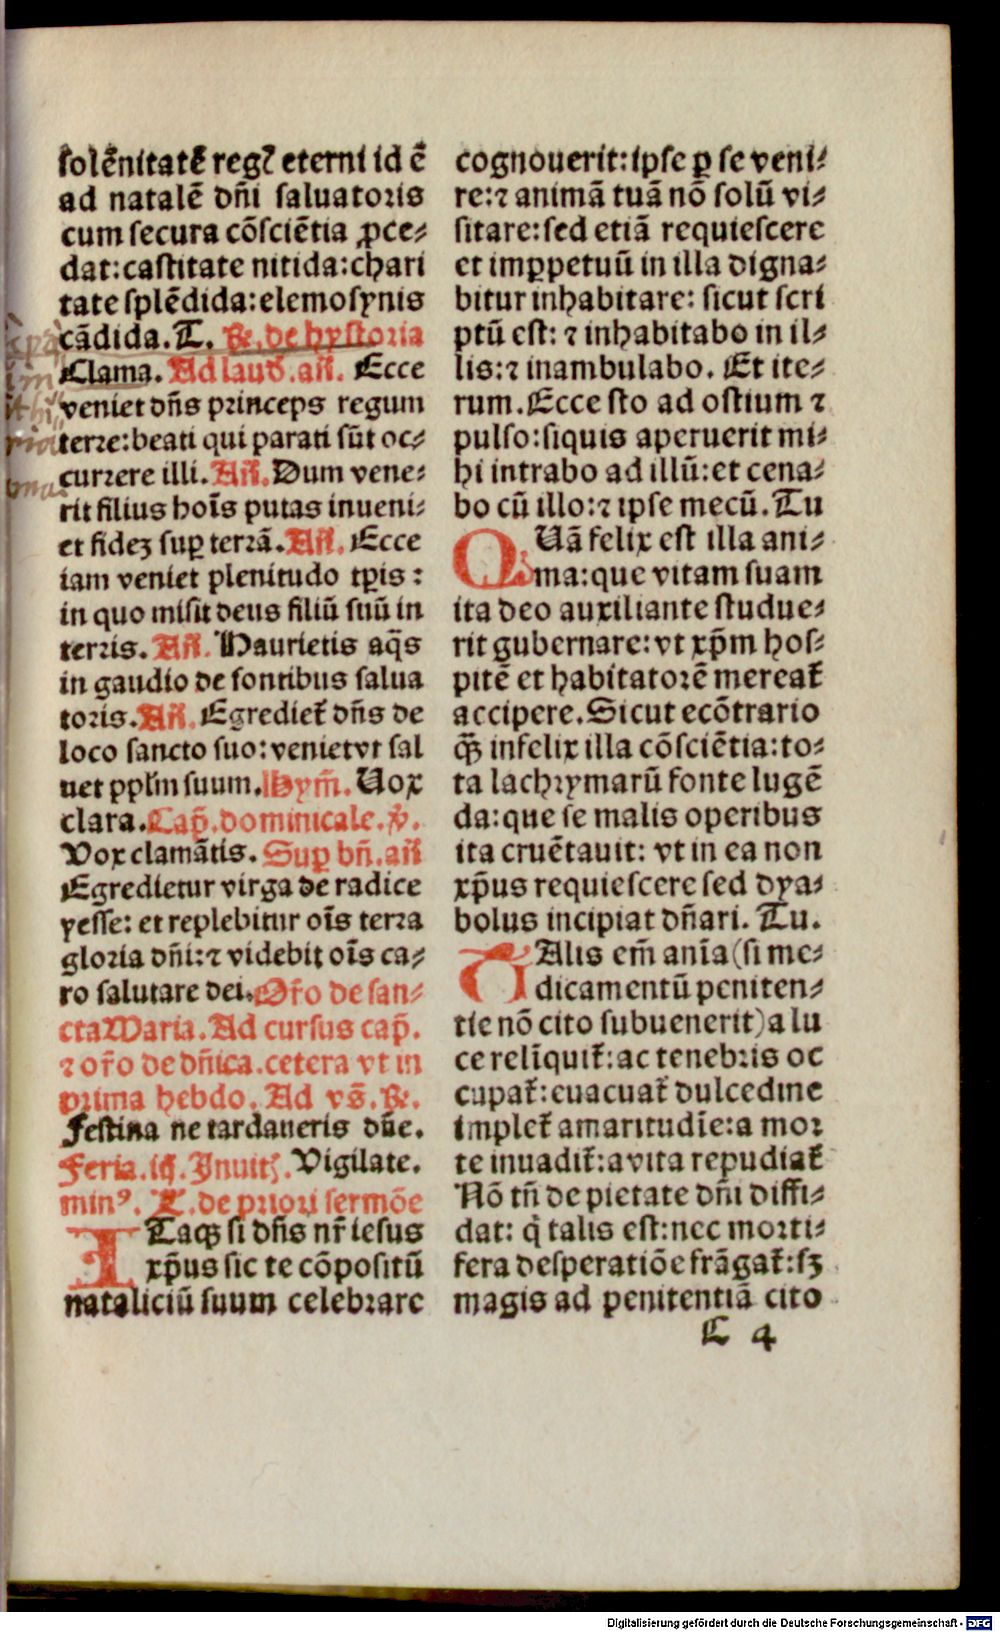 solẽnitatẽ regꝭ eterni id ẽ
ad natalẽ dñi saluatoris
cum secura cõsciẽtia ꝓce⸗
dat: castitate nitida: chari
tate splẽdida: elemosynis
cãdida. T. ℟. de hystoria
Clama. Ad laud̕. añ. Ecce
veniet dñs princeps regum
terre: beati qui parati sũt oc⸗
currere illi. Añ. Dum vene⸗
rit filius hoĩs putas inueni⸗
et fideꝫ suꝑ terrã. Añ. Ecce
iam veniet plenitudo tꝑis:
in quo misit deus filiũ suũ in
terris. Añ. Haurietis aq̃s
in gaudio de fontibus salua
toris. Añ. Egrediet̃ dñs de
loco sancto suo: veniet vt sal
uet ppl̃m suum. Hym̃. Uox
clara. Cap̃. dominicale. ℣.
Vox clamãtis. Suꝑ bñ. añ
Egredietur virga de radice
yesse: et replebitur oĩs terra
gloria dñi: ⁊ videbit oĩs ca⸗
ro salutare dei. Or̃o de san⸗
cta Maria. Ad cursus cap̃.
⁊ or̃o de dñica. cetera vt in
prima hebdo. Ad vs̃. ℟.
Festina ne tardaueris dñe.
Feria. ij. Inuitꝭ. Vigilate.
minꝰ. L. de priori sermõe
ITaqꝫ si dñs nr̃ iesus
xp̃us sic te cõpositũ
nataliciũ suum celebrare
cognouerit: ipse ꝑ se veni⸗
re: ⁊ animã tuã nõ solũ vi⸗
sitare: sed etiã requiescere
et imꝑpetuũ in illa digna⸗
bitur inhabitare: sicut scri
ptũ est: ⁊ inhabitabo in il⸗
lis: ⁊ inambulabo. Et ite⸗
rum. Ecce sto ad ostium ⁊
pulso: siquis aperuerit mi⸗
hi intrabo ad illũ: et cena⸗
bo cũ illo: ⁊ ipse mecũ. Tu
QUã felix est illa ani⸗
ma: que vitam suam
ita deo auxiliante studue⸗
rit gubernare: vt xp̃m hos⸗
pitẽ et habitatorẽ mereat̃
accipere. Sicut ecõtrario
q̃ꝫ infelix illa cõsciẽtia: to⸗
ta lachrymarũ fonte lugẽ
da: que se malis operibus
ita cruẽtauit: vt in ea non
xp̃us requiescere sed dya⸗
bolus incipiat dñari. Tu.
TAlis em̃ anĩa (si me⸗
dicamentũ peniten⸗
tie nõ cito subuenerit) a lu
ce relĩquit̃: ac tenebris oc
cupat̃: euacuat̃ dulcedine
implet̃ amaritudĩe: a mor
te inuadit̃: a vita repudiat̃
Nõ tñ de pietate dñi diffi⸗
dat: q̇ talis est: nec morti⸗
fera desperatiõe frãgat̃: sꝫ
magis ad penitentiã cito
C 4
Digitalisierung gefördert durch die Deutsche Forschungsgemeinschaft - DFG